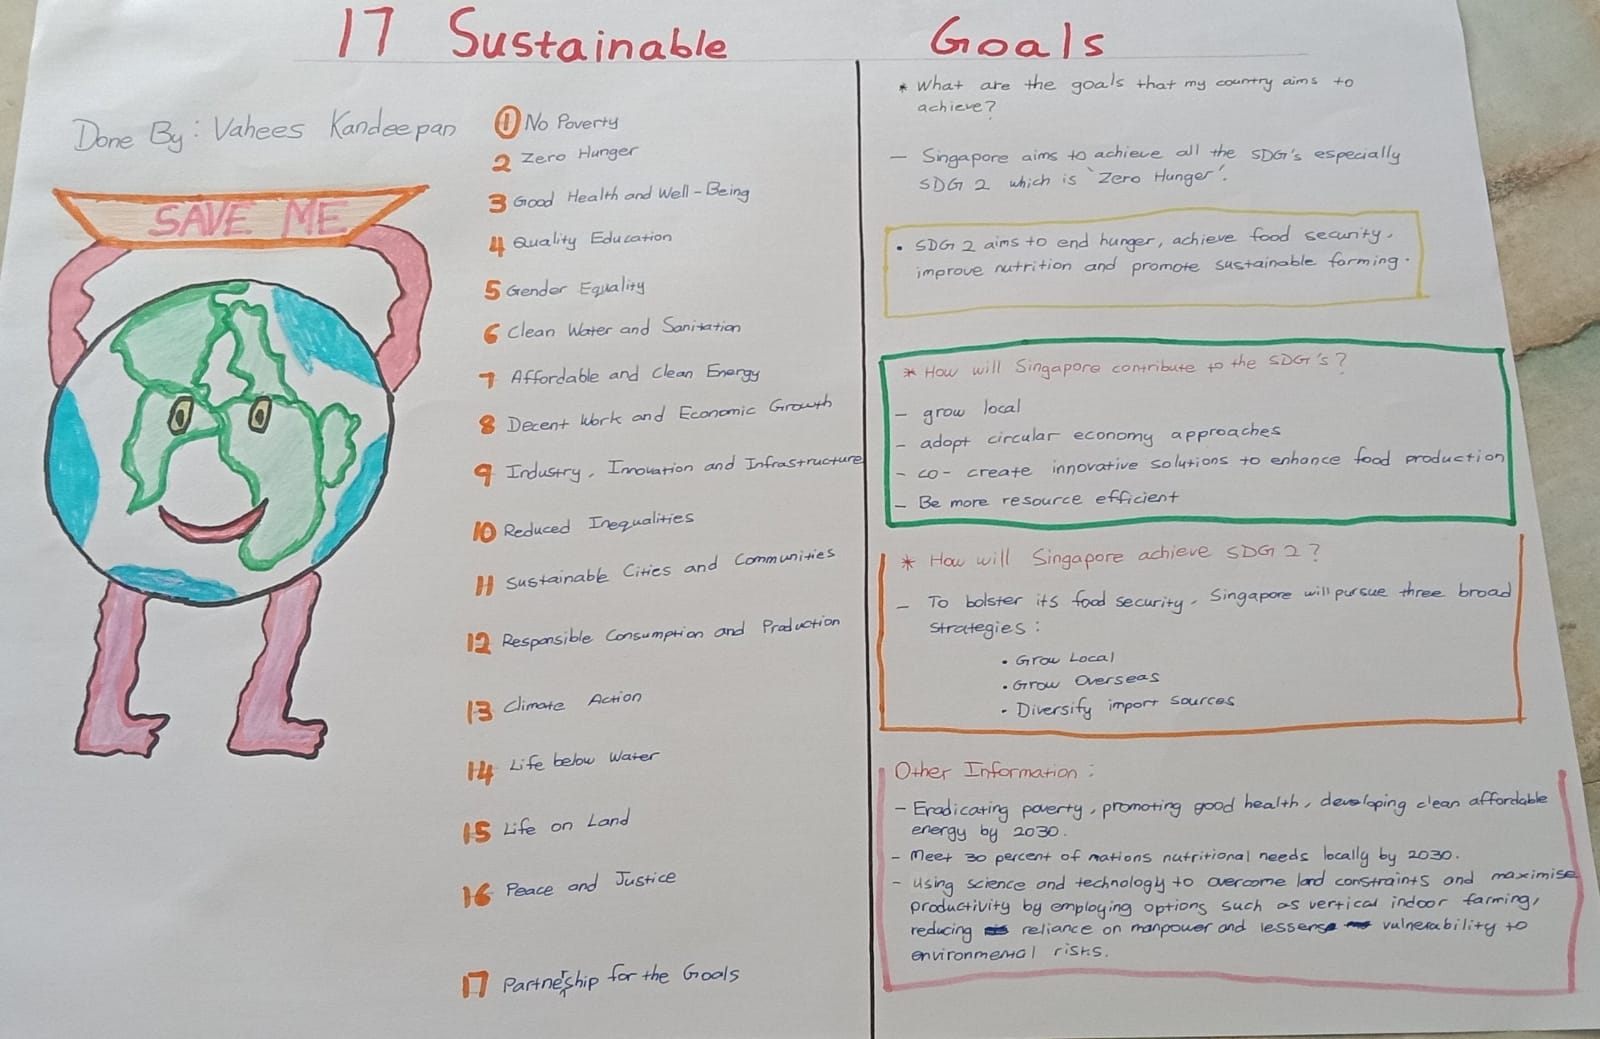 17 Sustainable Goals
Done By: Vahees Kandeepan
SAVE ME
1 No Poverty
2 Zero Hunger
3 Good Health and Well-Being
4 Quality Education
5 Gender Equality
6 Clean Water and Sanitation
7 Affordable and Clean Energy
8 Decent Work and Economic Growth
9 Industry, Innovation and Infrastructure
10 Reduced Inequalities
11 Sustainable Cities and Communities
12 Responsible Consumption and Production
13 Climate Action
14 Life below Water
15 Life on Land
16 Peace and Justice
17 Partnership for the Goals
* What are the goals that my country aims to
achieve?
- Singapore aims to achieve all the SDG's especially
SDG 2 which is 'Zero Hunger'.
• SDG 2 aims to end hunger, achieve food security,
improve nutrition and promote sustainable farming.
* How will Singapore contribute to the SDG's?
- grow local
- adopt circular economy approaches
- co-create innovative solutions to enhance food production
- Be more resource efficient
* How will Singapore achieve SDG 2?
- To bolster its food security, Singapore will pursue three broad
strategies:
• Grow Local
• Grow Overseas
• Diversify import sources
Other Information:
- Eradicating poverty, promoting good health, developing clean affordable
energy by 2030.
- Meet 30 percent of nations nutritional needs locally by 2030.
- Using science and technology to overcome land constraints and maximise
productivity by employing options such as vertical indoor farming,
reducing reliance on manpower and lessens vulnerability to
environmental risks.